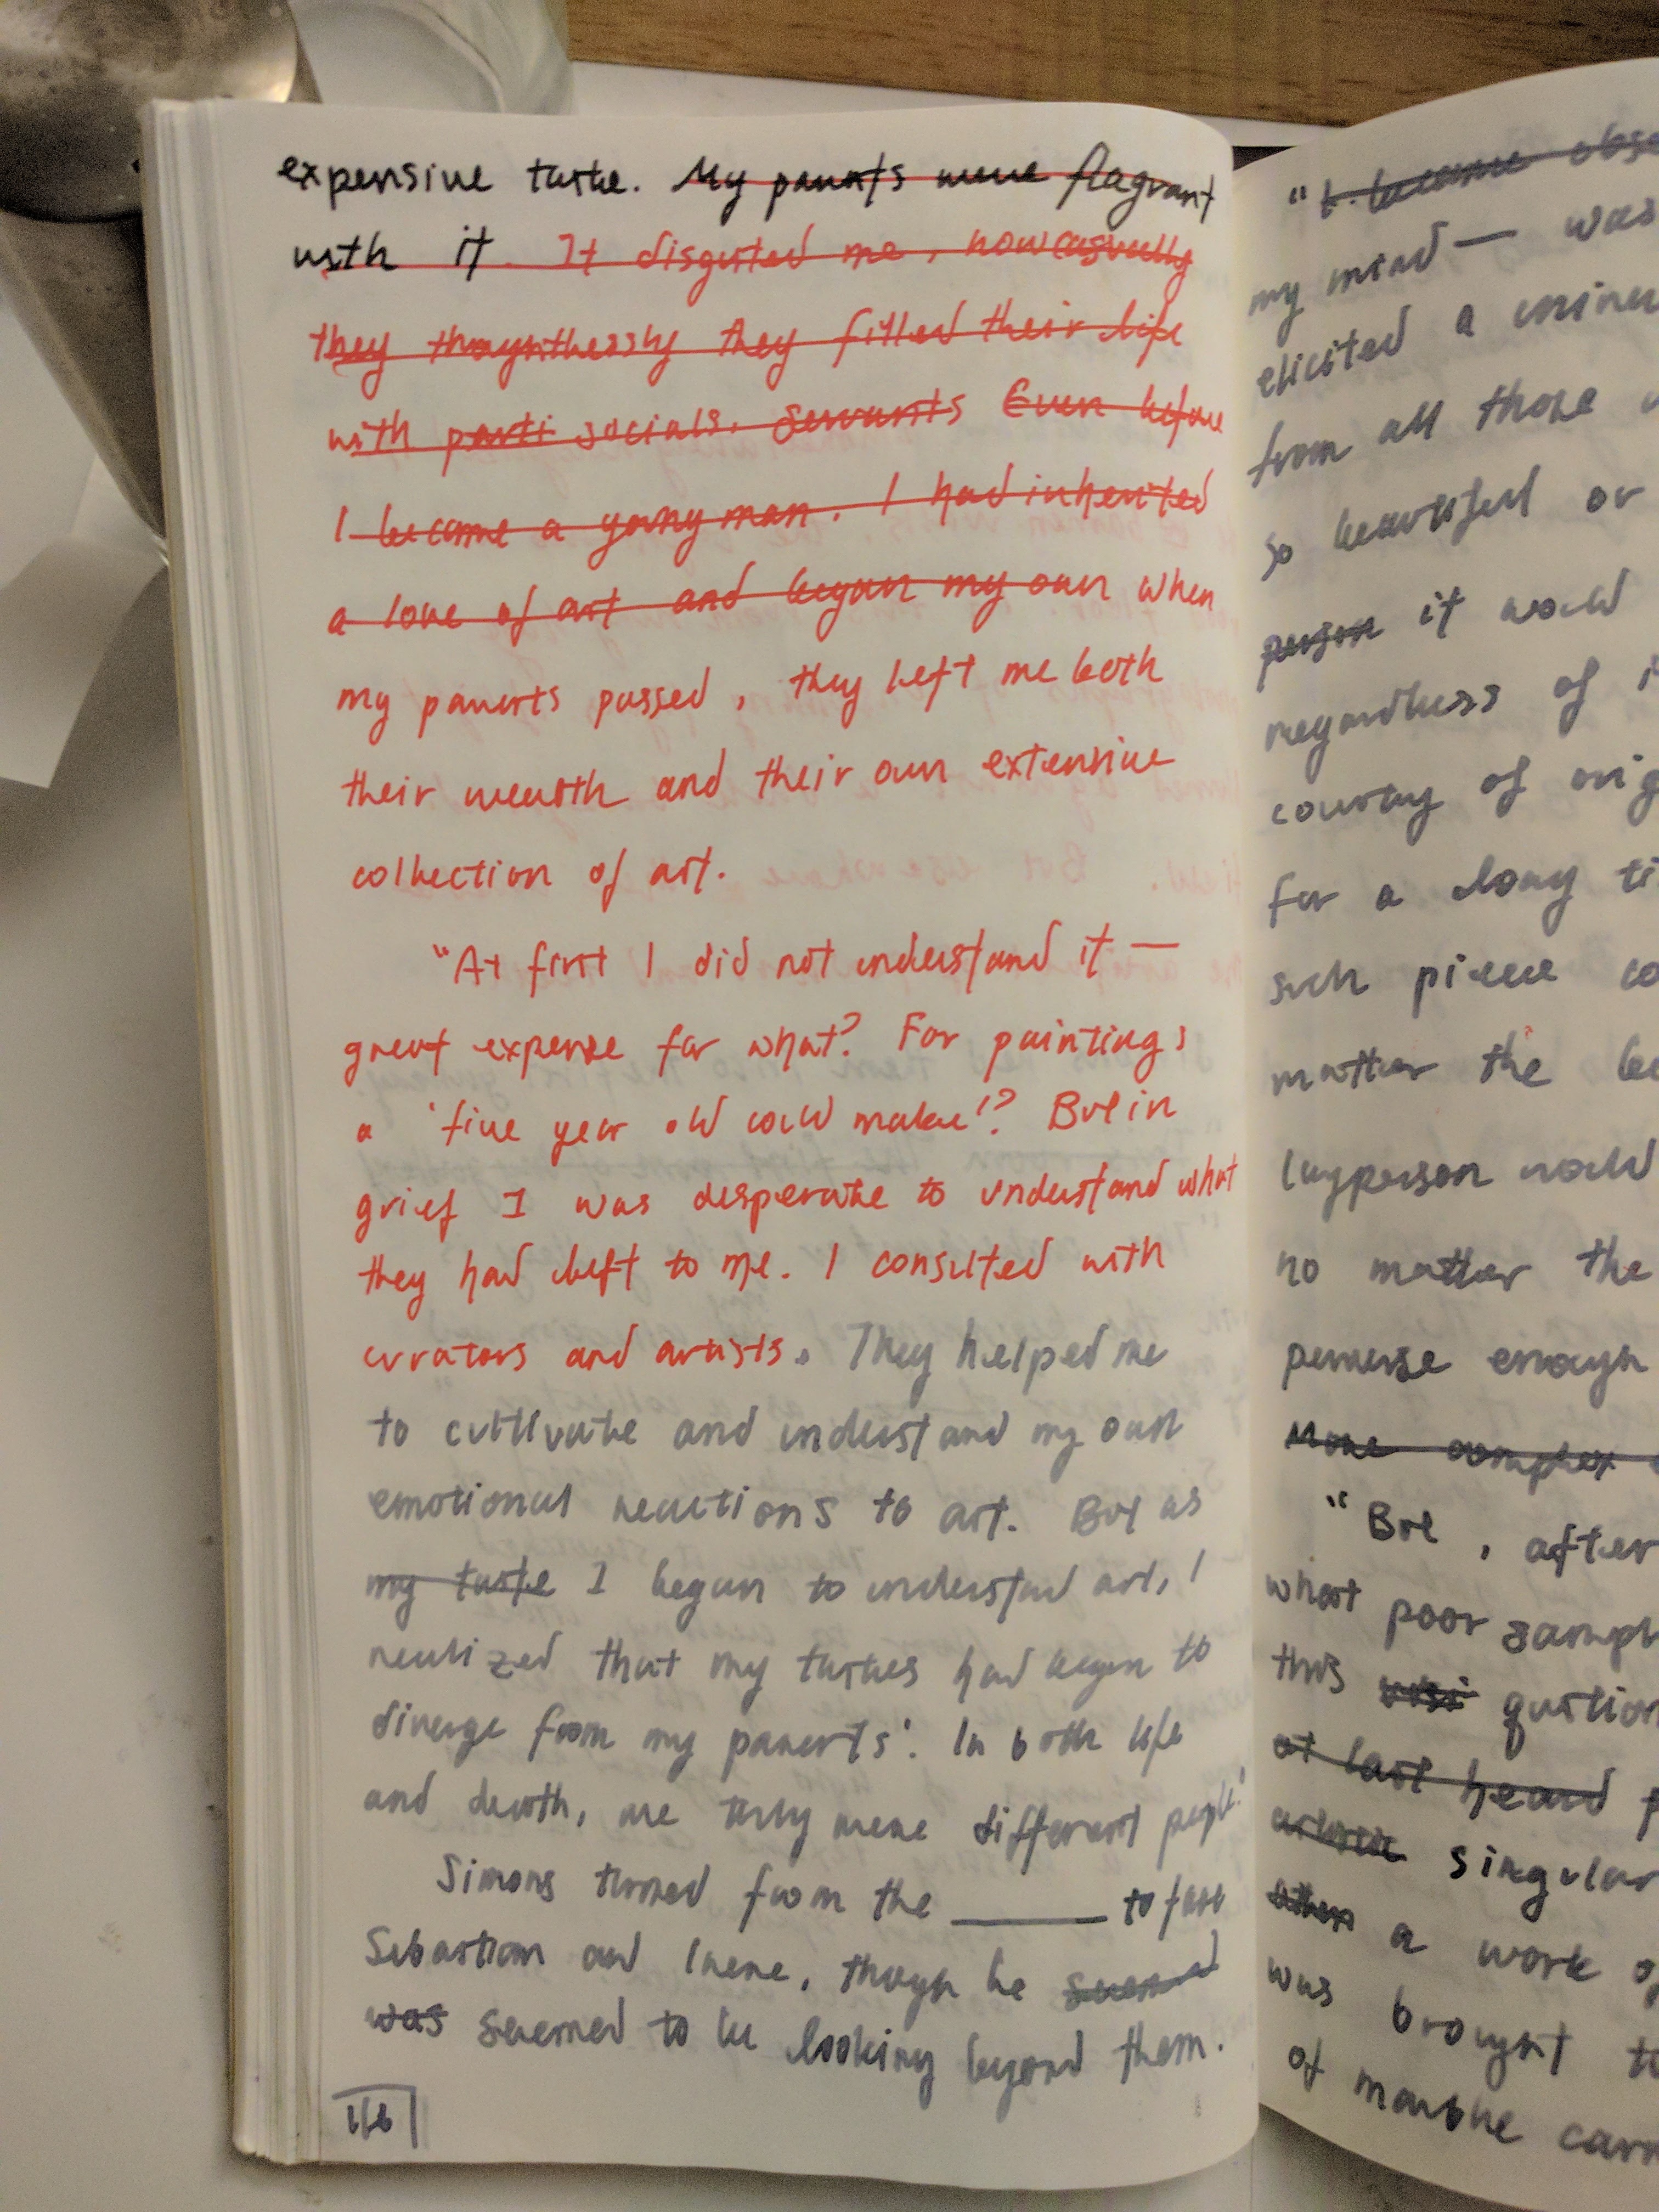 expensive taste. My parents were flagrant
with it. It disgusted me, how casually
they thoughtlessly they filled their life
with parti socials. Servants Even before
I became a young man. I had inherited
a love of art and began my own when
my parents passed, they left me both
their wealth and their own extensive
collection of art.
"At first I did not understand it —
great expense for what? For paintings
a 'five year old could make'!? But in
grief I was desperate to understand what
they had left to me. I consulted with
curators and artists. They helped me
to cultivate and understand my own
emotional reactions to art. But as
my taste I began to understand art, I
realized that my tastes had begun to
diverge from my parents'. In both life
and death, we truly were different people."
Simons turned from the ______ to face
Sebastian and Irene, though he seemed
was seemed to be looking beyond them.
116
"I became obse
my mind — was
elicited a
from all those
so beautiful or
person it would
regardless of
country of orig
for a long ti
such piece co
matter the be
layperson would
no matter the
perverse enough
More complex
"But, after
what poor sampl
this question
at last heard
singular
a work of
was brought to
of marble carv